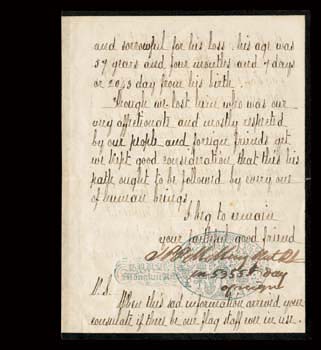 and sorrowful for his loss. his age was
57 years and four months and 7 days
or 20,
day from his birth.
Though we lost him who was our
very affectionate and mostly respected
by our people and foreign friends yet
we kept good consideration that this his
path ought to be followed by every one
of human beings.
I beg to remain
your faithful good friend
in 5355th day
of reign
P.S.
When this sad information arrived your
consulate if there be our flag staff
in use.